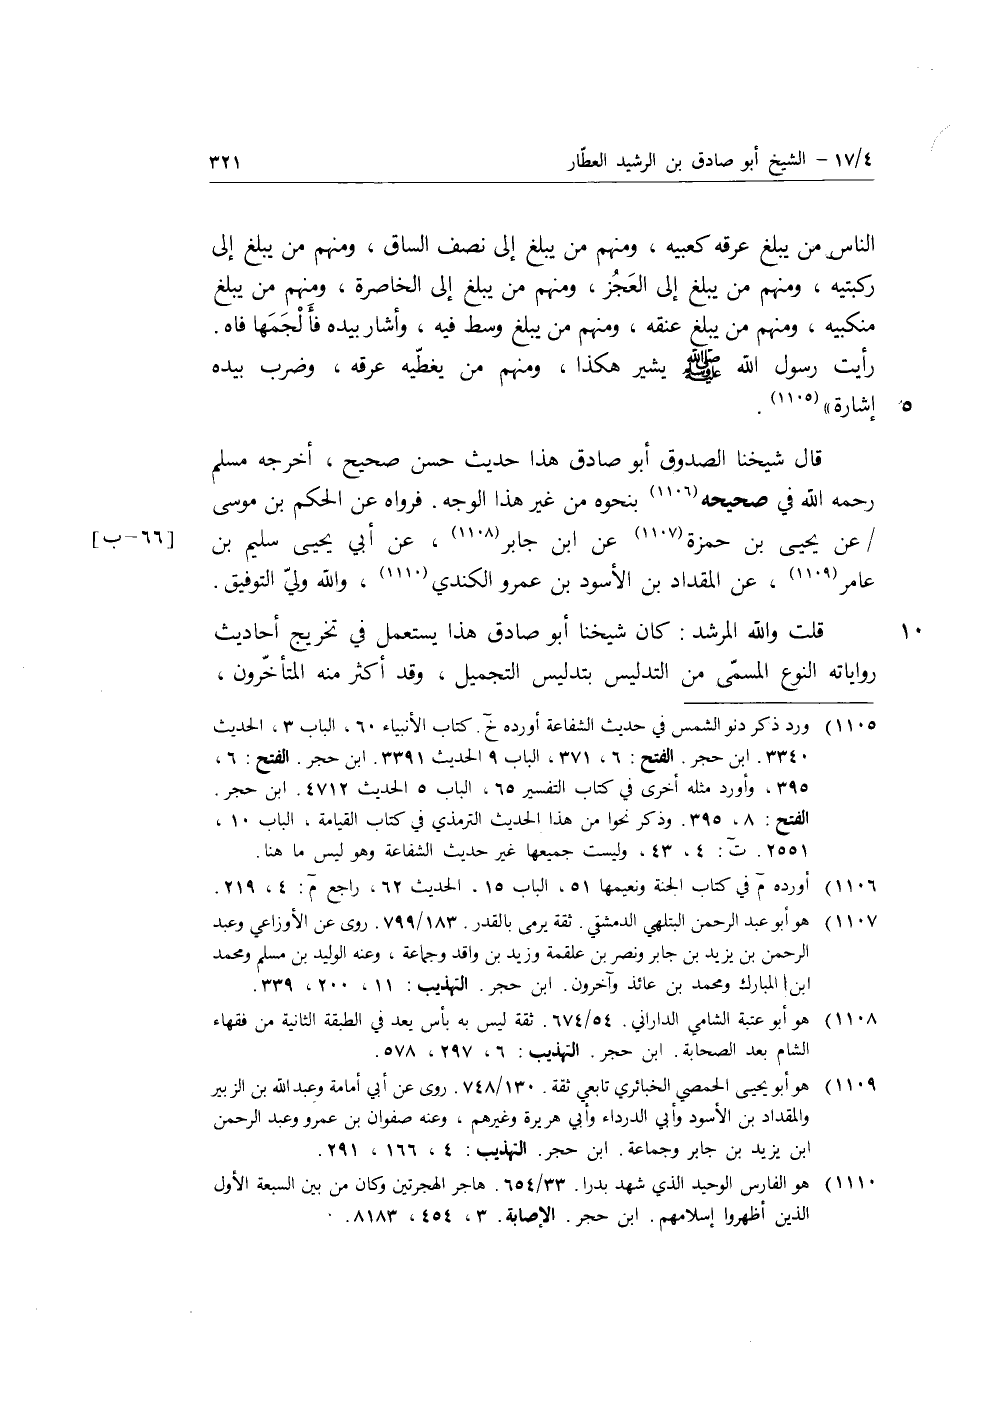 ١٧/٤ – الشيخ أبو صادق بن الرشيد العطّار ٣٢١
الناس من يبلغ عرقه كعبيه ، ومنهم من يبلغ إلى نصف الساق ، ومنهم من يبلغ إلى
ركبتيه ، ومنهم من يبلغ إلى العَجُز ، ومنهم من يبلغ إلى الخاصرة ، ومنهم من يبلغ
منكبيه ، ومنهم من يبلغ عنقه ، ومنهم من يبلغ وسط فيه ، وأشار بيده فأَلْجَمَها فاه.
رأيت رسول الله ﷺ يشير هكذا ، ومنهم من يغطّيه عرقه ، وضرب بيده
٥ إشارة» (١١٠٥) .
قال شيخنا الصدوق أبو صادق هذا حديث حسن صحيح ، أخرجه مسلم
رحمه الله في صحيحه(١١٠٦) بنحوه من غير هذا الوجه. فرواه عن الحكم بن موسى
/ عن يحيى بن حمزة(١١٠٧) عن ابن جابر(١١٠٨) ، عن أبي يحيى سليم بن [٦٦–ب]
عامر(١١٠٩) ، عن المقداد بن الأسود بن عمرو الكندي(١١١٠) ، والله وليّ التوفيق.
١٠ قلت والله المرشد : كان شيخنا أبو صادق هذا يستعمل في تخريج أحاديث
رواياته النوع المسمّى من التدليس بتدليس التجميل ، وقد أكثر منه المتأخّرون ،
١١٠٥) ورد ذكر دنو الشمس في حديث الشفاعة أورده خ. كتاب الأنبياء ٦٠ ، الباب ٣ ، الحديث
٣٣٤٠. ابن حجر. الفتح : ٦ ، ٣٧١ ، الباب ٩ الحديث ٣٣٩١. ابن حجر. الفتح : ٦ ،
٣٩٥ ، وأورد مثله أخرى في كتاب التفسير ٦٥ ، الباب ٥ الحديث ٤٧١٢. ابن حجر.
الفتح : ٨ ، ٣٩٥. وذكر نحوا من هذا الحديث الترمذي في كتاب القيامة ، الباب ١٠ ،
٢٥٥١. ت : ٤ ، ٤٣ ، وليست جميعها غير حديث الشفاعة وهو ليس ما هنا.
١١٠٦) أورده م في كتاب الجنة ونعيمها ٥١ ، الباب ١٥. الحديث ٦٢ ، راجع م : ٤ ، ٢١٩.
١١٠٧) هو أبو عبد الرحمن البتلهي الدمشقي. ثقة يرمى بالقدر. ٧٩٩/١٨٣. روى عن الأوزاعي وعبد
الرحمن بن يزيد بن جابر ونصر بن علقمة وزيد بن واقد وجماعة ، وعنه الوليد بن مسلم ومحمد
ابن المبارك ومحمد بن عائذ وآخرون. ابن حجر. التهذيب : ١١ ، ٢٠٠ ، ٣٣٩.
١١٠٨) هو أبو عتبة الشامي الداراني. ٦٧٤/٥٤. ثقة ليس به بأس يعد في الطبقة الثانية من فقهاء
الشام بعد الصحابة. ابن حجر. التهذيب : ٦ ، ٢٩٧ ، ٥٧٨.
١١٠٩) هو أبو يحيى الحمصي الخبائري تابعي ثقة. ٧٤٨/١٣٠. روى عن أبي أمامة وعبد الله بن الزبير
والمقداد بن الأسود وأبي الدرداء وأبي هريرة وغيرهم ، وعنه صفوان بن عمرو وعبد الرحمن
ابن يزيد بن جابر وجماعة. ابن حجر. التهذيب : ٤ ، ١٦٦ ، ٢٩١.
١١١٠) هو الفارس الوحيد الذي شهد بدرا. ٦٥٤/٣٣. هاجر الهجرتين وكان من بين السبعة الأول
الذين أظهروا إسلامهم. ابن حجر. الإصابة. ٣ ، ٤٥٤ ، ٨١٨٣.